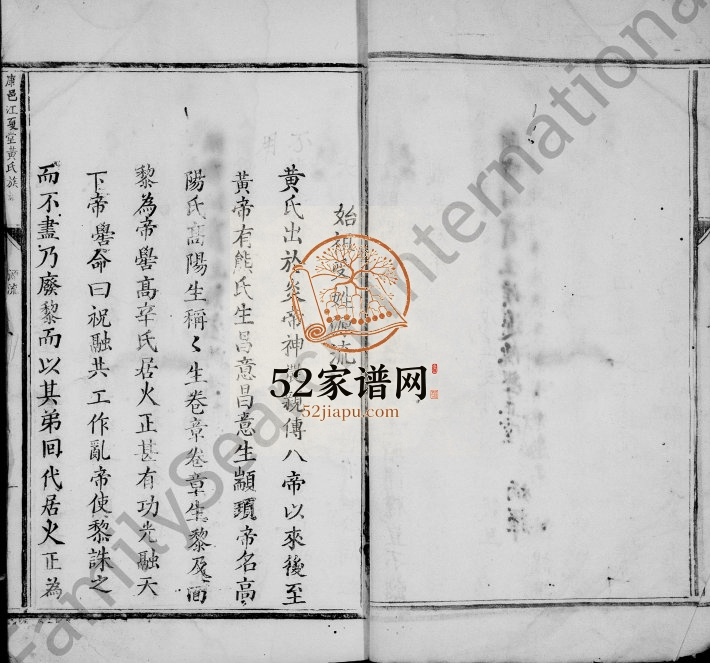 始祖受姓源流
黃氏出於炎帝神 親傳八帝以來後至
黃帝有熊氏生昌意昌意生顓頊帝名高
陽氏高陽生稱〻生卷章卷章生黎及回
黎為帝嚳高辛氏居火正甚有功光融天
下帝嚳命曰祝融共工作亂帝使黎誅之
而不盡乃廢黎而以其弟回代居火正為
康邑江夏堂黃氏族
源流
52家谱网
52jiapu.com
FamilySearch International